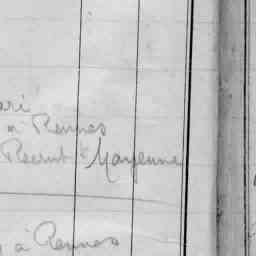 ari
à Rennes
Recrut t Mayenne
à Rennes